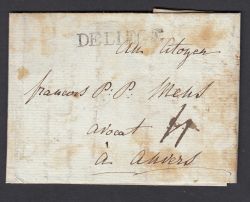 DE LIEGE
Au Citoyen
francois P. P. Mens
avocat
à Anvers